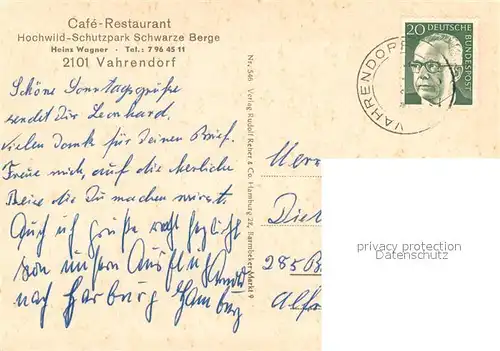 Café-Restaurant
Hochwild-Schutzpark Schwarze Berge
Heinz Wagner · Tel.: 7 96 45 11
2101 Vahrendorf
Schöne Sonntagsgrüße
sendet Dir Leonhard.
vielen Dank für Deinen Brief.
Freue mich, auf die herrliche
Reise die Du machen wirst.
Auch ich grüße recht herzlich
von unserem Ausflug
nach Harburg Hamburg
Nr. 546 Verlag Rudolf Reher & Co. Hamburg 22, Barmbeker Markt 9
VAHRENDORF
20 DEUTSCHE BUNDESPOST
Herr
Diet
285 B
Alf
privacy protection
Datenschutz